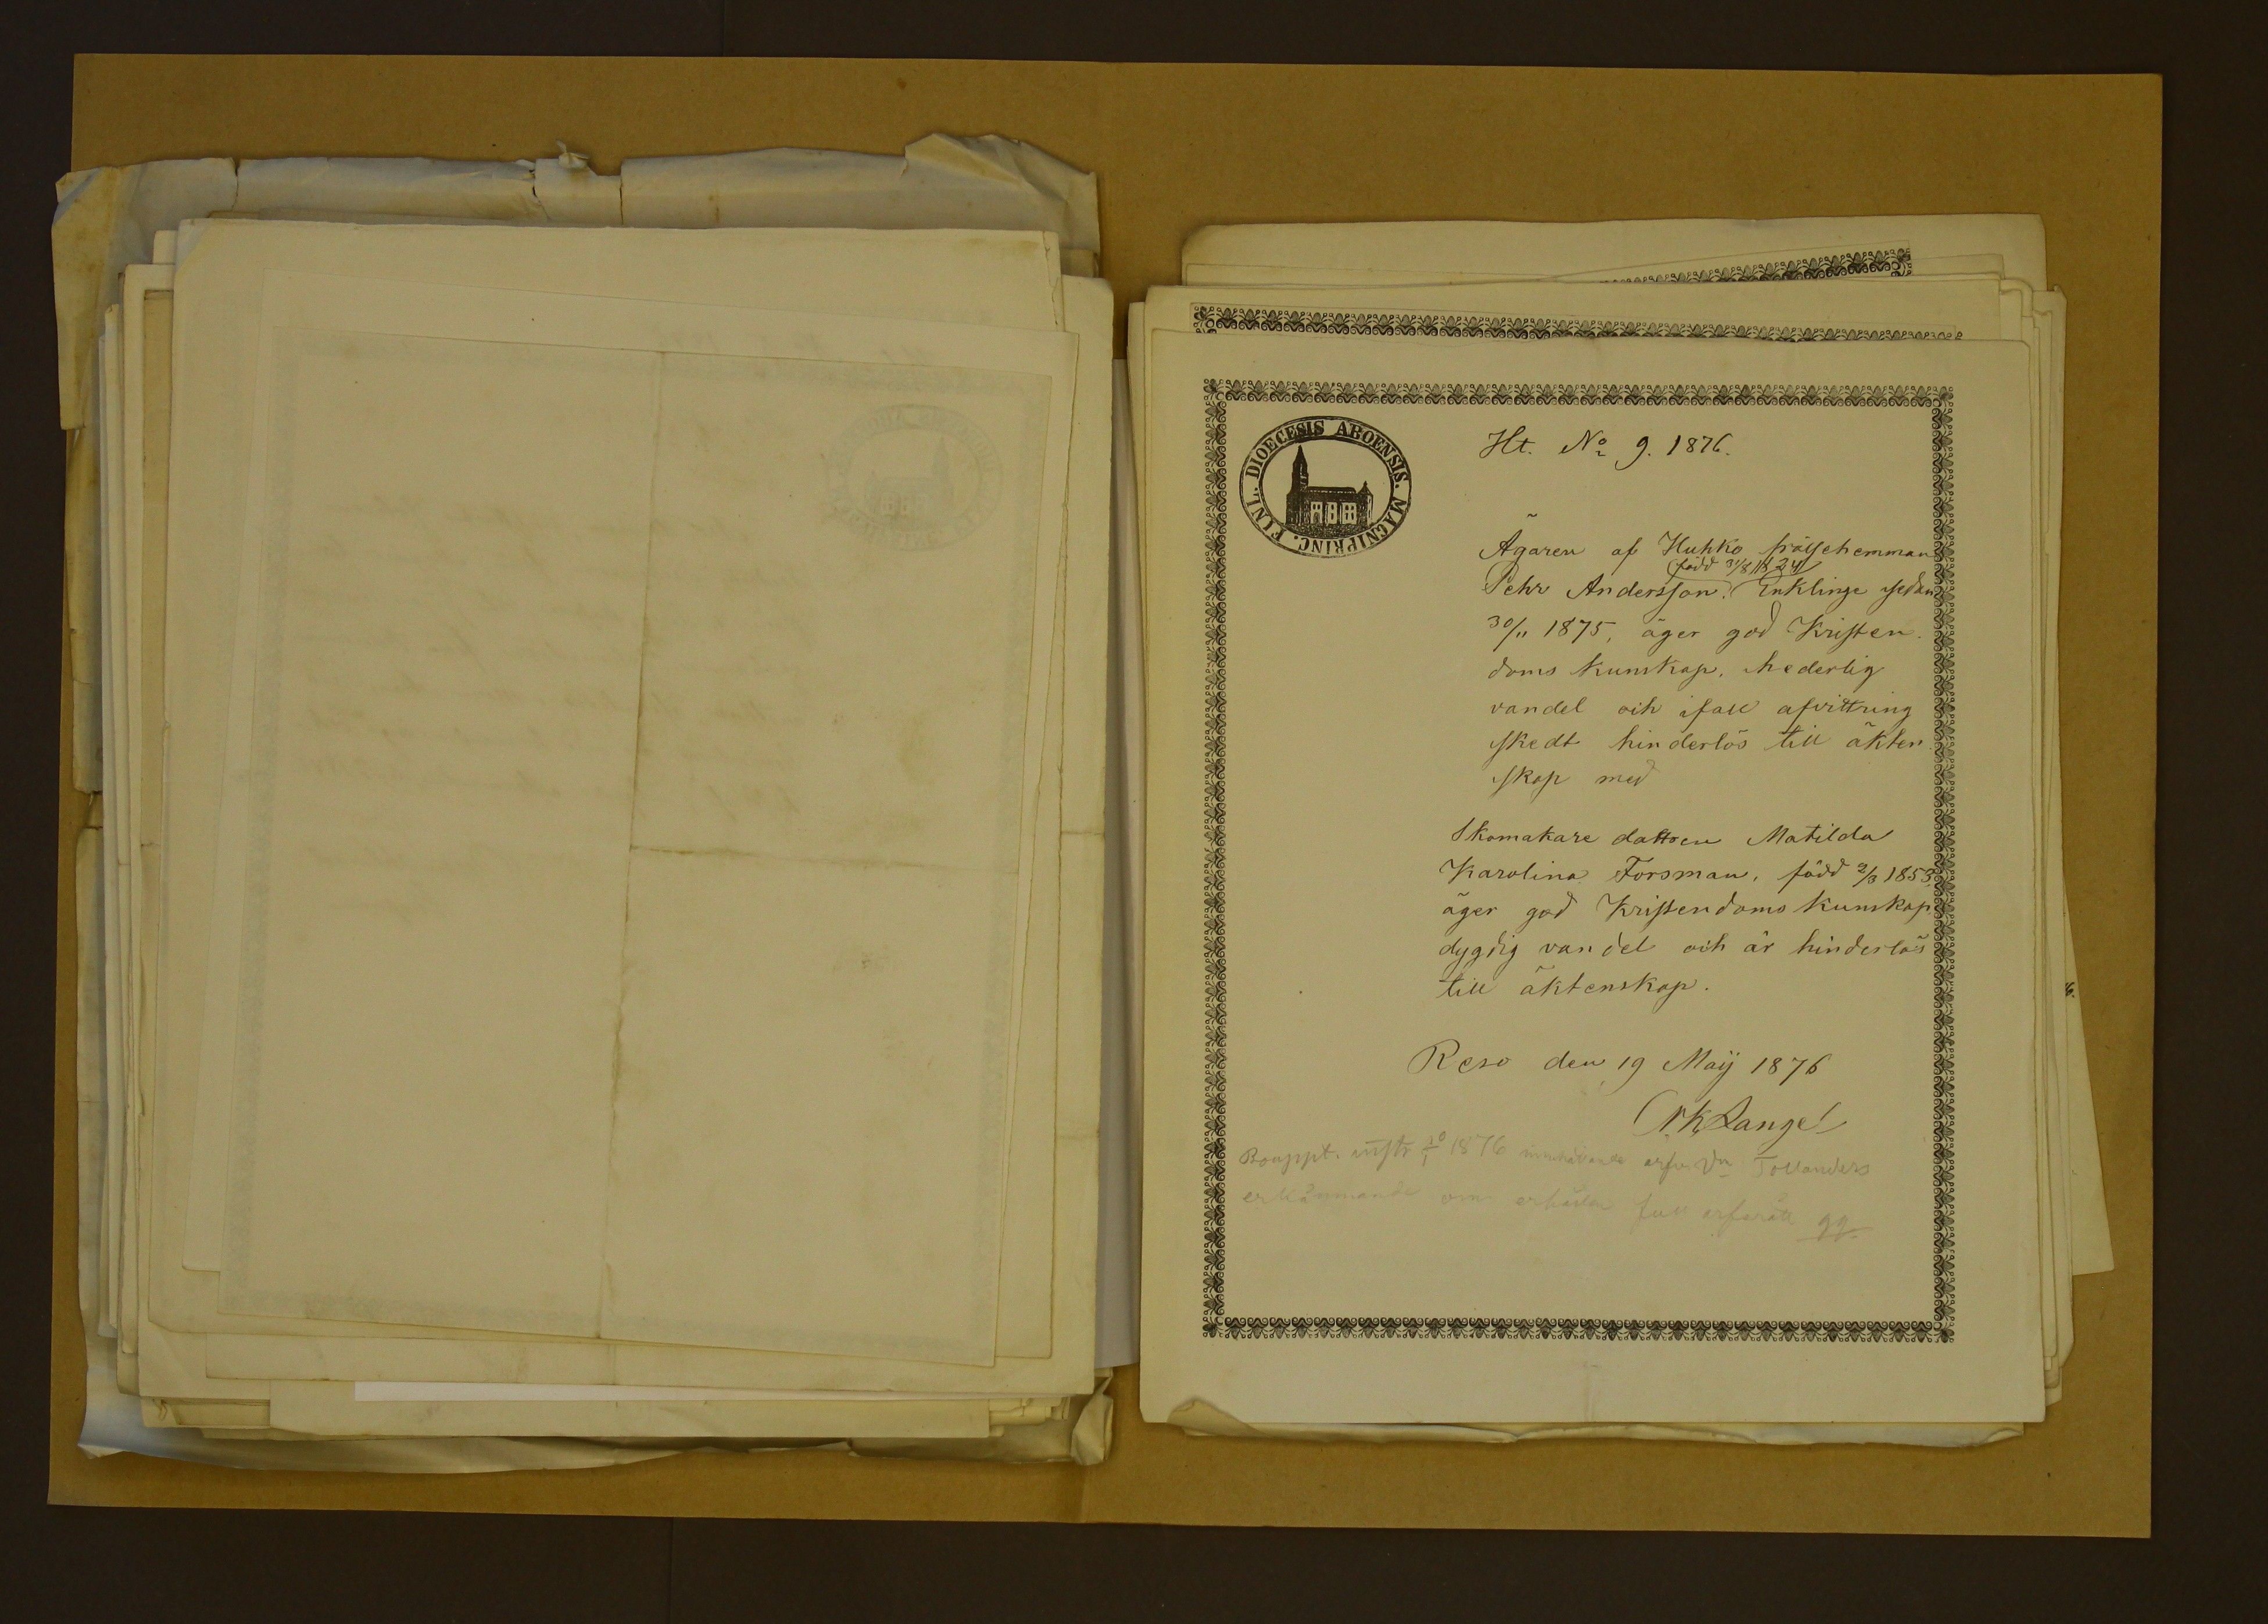 FINL. DIOECESIS ABOENSIS. MAGNIPRINC.
Ht. No 9. 1876.
Ägaren af Huhko frälsehemman
född 31/8 1824
Pehr Andersson. Enklinge sedan
30/11 1875, äger god Kristen-
doms kunskap, hederlig
vandel och ifall afvittring
skedt hinderlös till äkten-
skap med
Skomakare dottren Matilda
Karolina Forsman, född 2/3 1853,
äger god Kristendoms kunskap
dygdig vandel och är hinderlös
till äktenskap.
Reso den 19 Maij 1876
Bouppt. 1876 innehållande Tollanders
erkännande om erhållen full arfsrätt